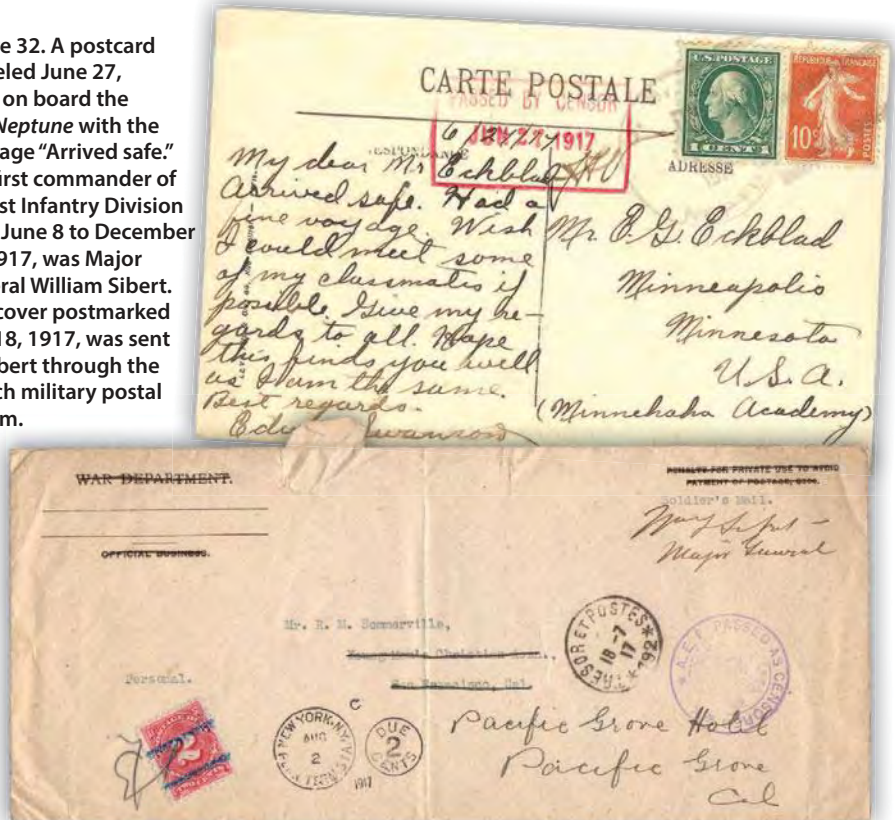 e 32. A postcard
eled June 27,
on board the
Neptune with the
age "Arrived safe."
irst commander of
st Infantry Division
June 8 to December
917, was Major
eral William Sibert.
cover postmarked
18, 1917, was sent
bert through the
ch military postal
m.
CARTE POSTALE
U.S. POSTAGE
1 CENT 1
REPUBLIQUE FRANÇAISE
10c
POSTES
PASSED BY CENSOR
JUN 27 1917
ESPONDANCE
ADRESSE
My dear Mr Eckblad
Arrived safe. Had a
fine voyage. Wish
I could meet some
of my classmates if
possible. Give my re-
gards to all. Hope
this finds you well
as I am the same.
Best regards.
Swanson
Mr. E. G. Eckblad
Minneapolis
Minnesota
U.S.A.
(Minnehaha Academy)
WAR DEPARTMENT.
OFFICIAL BUSINESS.
PENALTY FOR PRIVATE USE TO AVOID
PAYMENT OF POSTAGE, $300.
Soldier's Mail.
Major General
Mr. R. M. Sommerville,
Young Men's Christian
San Francisco, Cal.
Personal.
TRESOR ET POSTES
18-7
17
*192*
A.E.F. PASSED AS CENSORED
NEW YORK, N.Y.
AUG
2
1917
DUE
2
CENTS
C
2
Pacific Grove Hotel
Pacific Grove
Cal